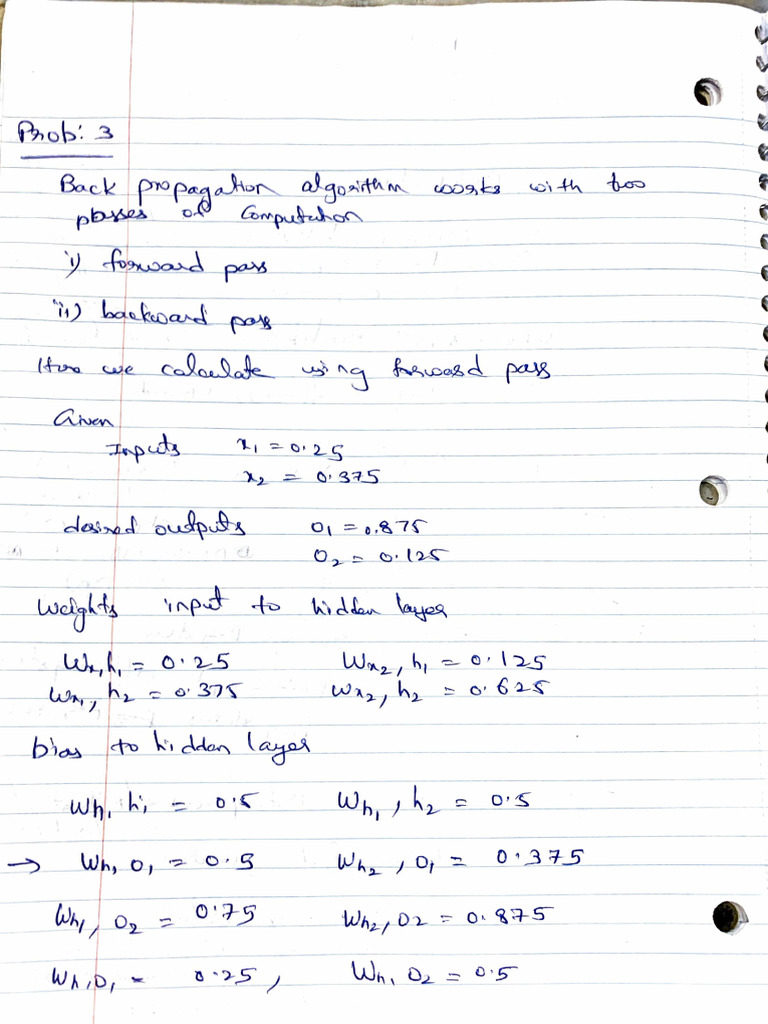 Prob: 3
Back propagation algorithm works with two
passes of Computation
i) forward pass
ii) backward pass
Here we calculate using forward pass
Given
Inputs x₁ = 0.25
x₂ = 0.375
desired outputs O₁ = 0.875
O₂ = 0.125
Weights input to hidden layer
Wx₁h₁ = 0.25 Wx₂, h₁ = 0.125
Wx₁, h₂ = 0.375 Wx₂, h₂ = 0.625
bias to hidden layer
Wh, h₁ = 0.5 Wh₁, h₂ = 0.5
→ Wh₁ O₁ = 0.5 Wh₂, O₁ = 0.375
Wh₁, O₂ = 0.75 Wh₂, O2 = 0.875
Wh, O₁ = 0.25, Wh, O₂ = 0.5